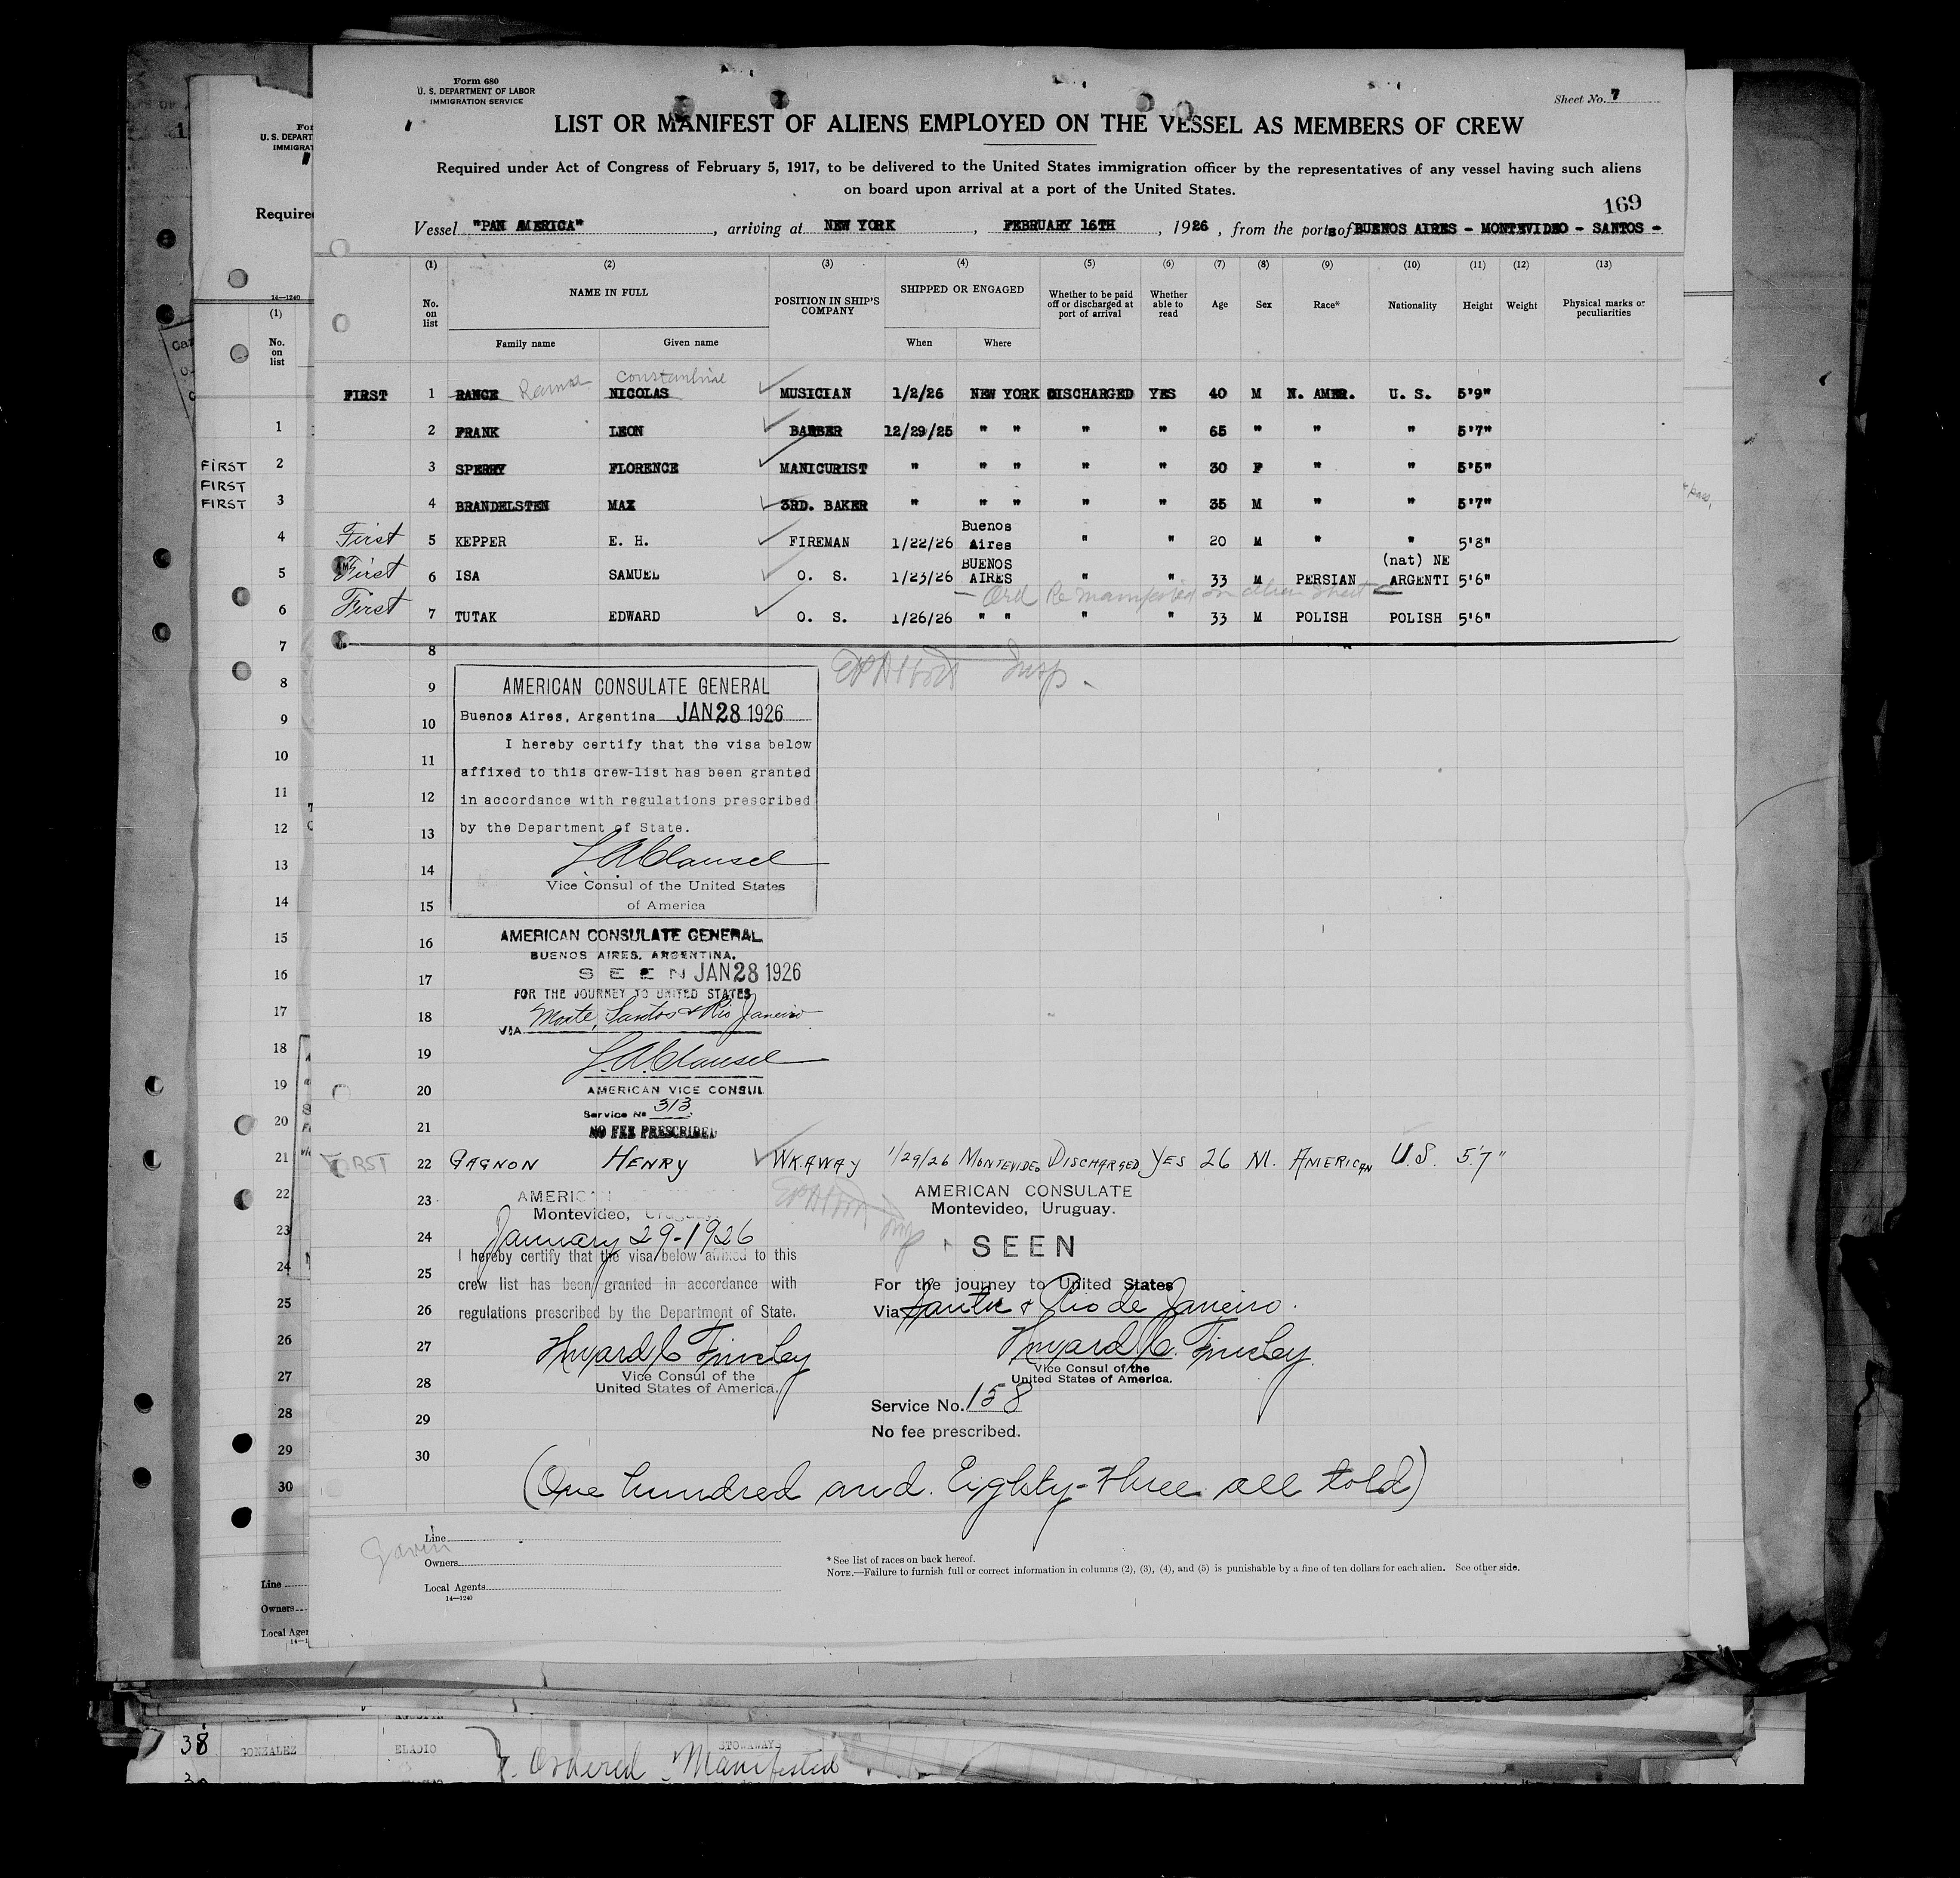 Form 680
U. S. DEPARTMENT OF LABOR
IMMIGRATION SERVICE
Sheet No. 7
LIST OR MANIFEST OF ALIENS EMPLOYED ON THE VESSEL AS MEMBERS OF CREW
Required under Act of Congress of February 5, 1917, to be delivered to the United States immigration officer by the representatives of any vessel having such aliens
on board upon arrival at a port of the United States.
169
Vessel "PAN AMERICA", arriving at NEW YORK, FEBRUARY 16TH, 1926, from the ports of BUENOS AIRES - MONTEVIDEO - SANTOS -
(1) (2) (3) (4) (5) (6) (7) (8) (9) (10) (11) (12) (13)
No. on list NAME IN FULL POSITION IN SHIP'S COMPANY SHIPPED OR ENGAGED Whether to be paid off or discharged at port of arrival Whether able to read Age Sex Race* Nationality Height Weight Physical marks or peculiarities
Family name Given name When Where
Constantine
FIRST 1 RANCE NICOLAS MUSICIAN 1/2/26 NEW YORK DISCHARGED YES 40 M N. AMER. U. S. 5'9"
2 FRANK LEON BARBER 12/29/25 " " " " 65 " " " 5'7"
3 SPERRY FLORENCE MANICURIST " " " " " 30 F " " 5'5"
4 BRANDELSTEN MAX 3RD. BAKER " " " " " 35 M " " 5'7"
First 5 KEPPER E. H. FIREMAN 1/22/26 Buenos Aires " " 20 M " " 5'8"
First 6 ISA SAMUEL O. S. 1/23/26 BUENOS AIRES " " 33 M PERSIAN (nat) NE ARGENTI 5'6"
Ord Remanifested on alien sheet
First 7 TUTAK EDWARD O. S. 1/26/26 " " " " 33 M POLISH POLISH 5'6"
8
Insp.
9
10
11
12
13
14
15
AMERICAN CONSULATE GENERAL
Buenos Aires, Argentina JAN 28 1926
I hereby certify that the visa below
affixed to this crew-list has been granted
in accordance with regulations prescribed
by the Department of State.
Vice Consul of the United States
of America
16
17
18
19
20
21
AMERICAN CONSULATE GENERAL
BUENOS AIRES, ARGENTINA.
SEEN JAN 28 1926
FOR THE JOURNEY TO UNITED STATES
VIA Monte, Santos & Rio Janeiro
AMERICAN VICE CONSUL
Service No 313
NO FEE PRESCRIBED
FIRST 22 GAGNON HENRY WKAWAY 1/29/26 MONTEVIDEO DISCHARGED YES 26 M. AMERICAN U.S. 5'7"
23
24
25
26
27
28
29
30
AMERICAN
Montevideo, Uruguay.
January 29-1926
I hereby certify that the visa below affixed to this
crew list has been granted in accordance with
regulations prescribed by the Department of State.
Vice Consul of the
United States of America.
AMERICAN CONSULATE
Montevideo, Uruguay.
SEEN
For the journey to United States
Via Santos & Rio de Janeiro.
Vice Consul of the
United States of America.
Service No. 158
No fee prescribed.
(One hundred and. Eighty-three all told)
Line
Owners
Local Agents
14—1240
* See list of races on back hereof.
NOTE.—Failure to furnish full or correct information in columns (2), (3), (4), and (5) is punishable by a fine of ten dollars for each alien. See other side.
Gavin
U. S. DEPART
IMMIGRA
Required
14—1240
(1)
No.
on
list
1
FIRST 2
FIRST
FIRST 3
4
5
6
7
8
9
10
11
12
13
14
15
16
17
18
19
20
21
22
23
24
25
26
27
28
29
30
Line
Owners
Local Agen
38 GONZALEZ ELADIO STOWAWAYS
Ordered Manifested